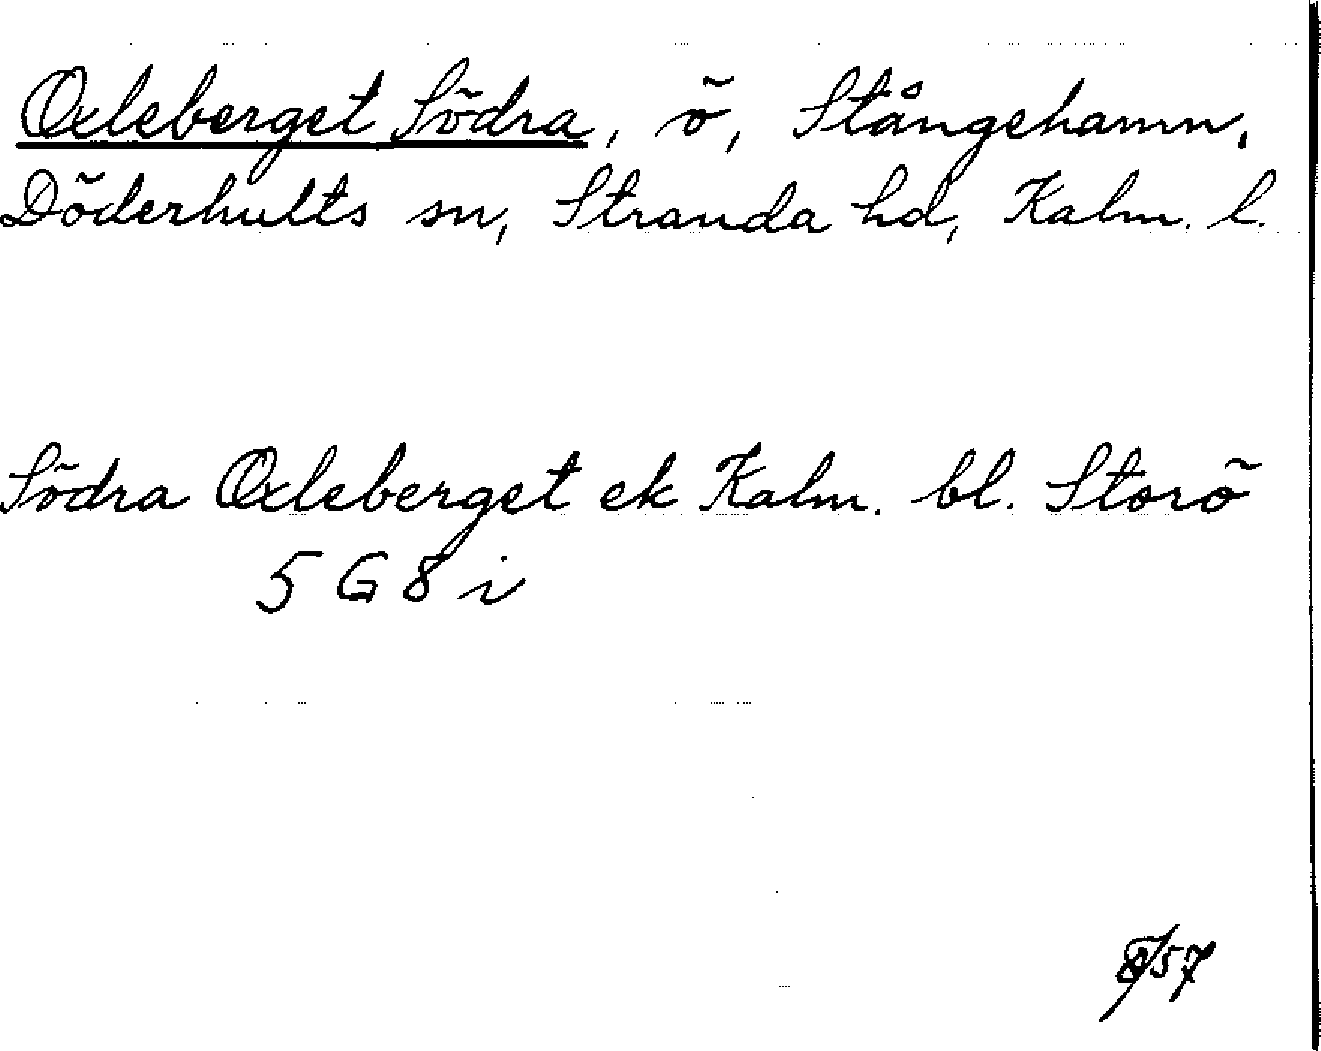 Oxleberget Södra, ö, Stångehamn,
Döderhults sn, Stranda hd, Kalm. l.
Södra Oxleberget ek Kalm. bl. Storö
5 G 8 i
/57